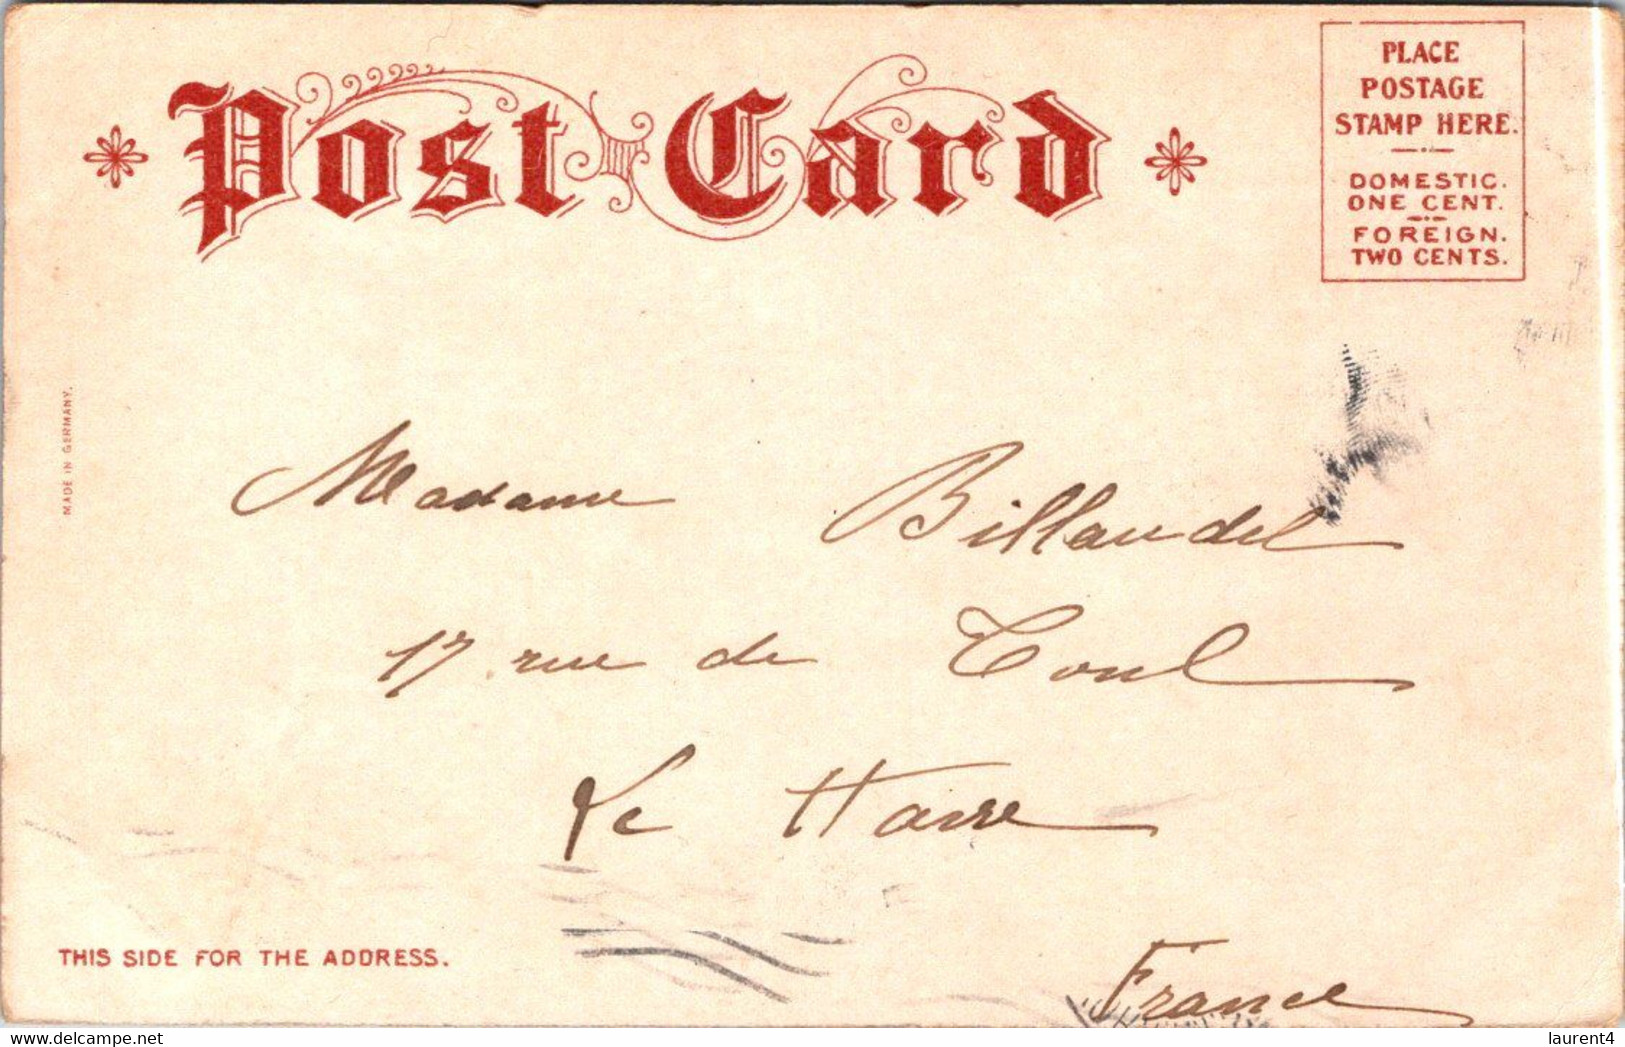 Post Card
PLACE
POSTAGE
STAMP HERE.
DOMESTIC.
ONE CENT.
FOREIGN.
TWO CENTS.
MADE IN GERMANY.
Madame Billaudel
17 rue de Toul
Le Havre
THIS SIDE FOR THE ADDRESS.
France
laurent4